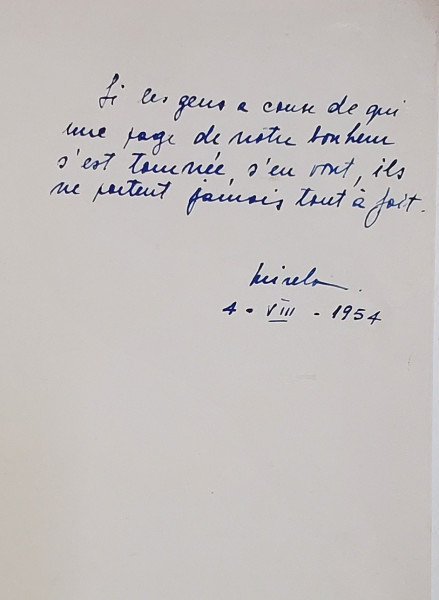 Si les gens a couse de qui
une page de notre bonheur
s'est tournée, s'en vont, ils
ne partent jamais tout à fait.
Mirela.
4 - VIII - 1954